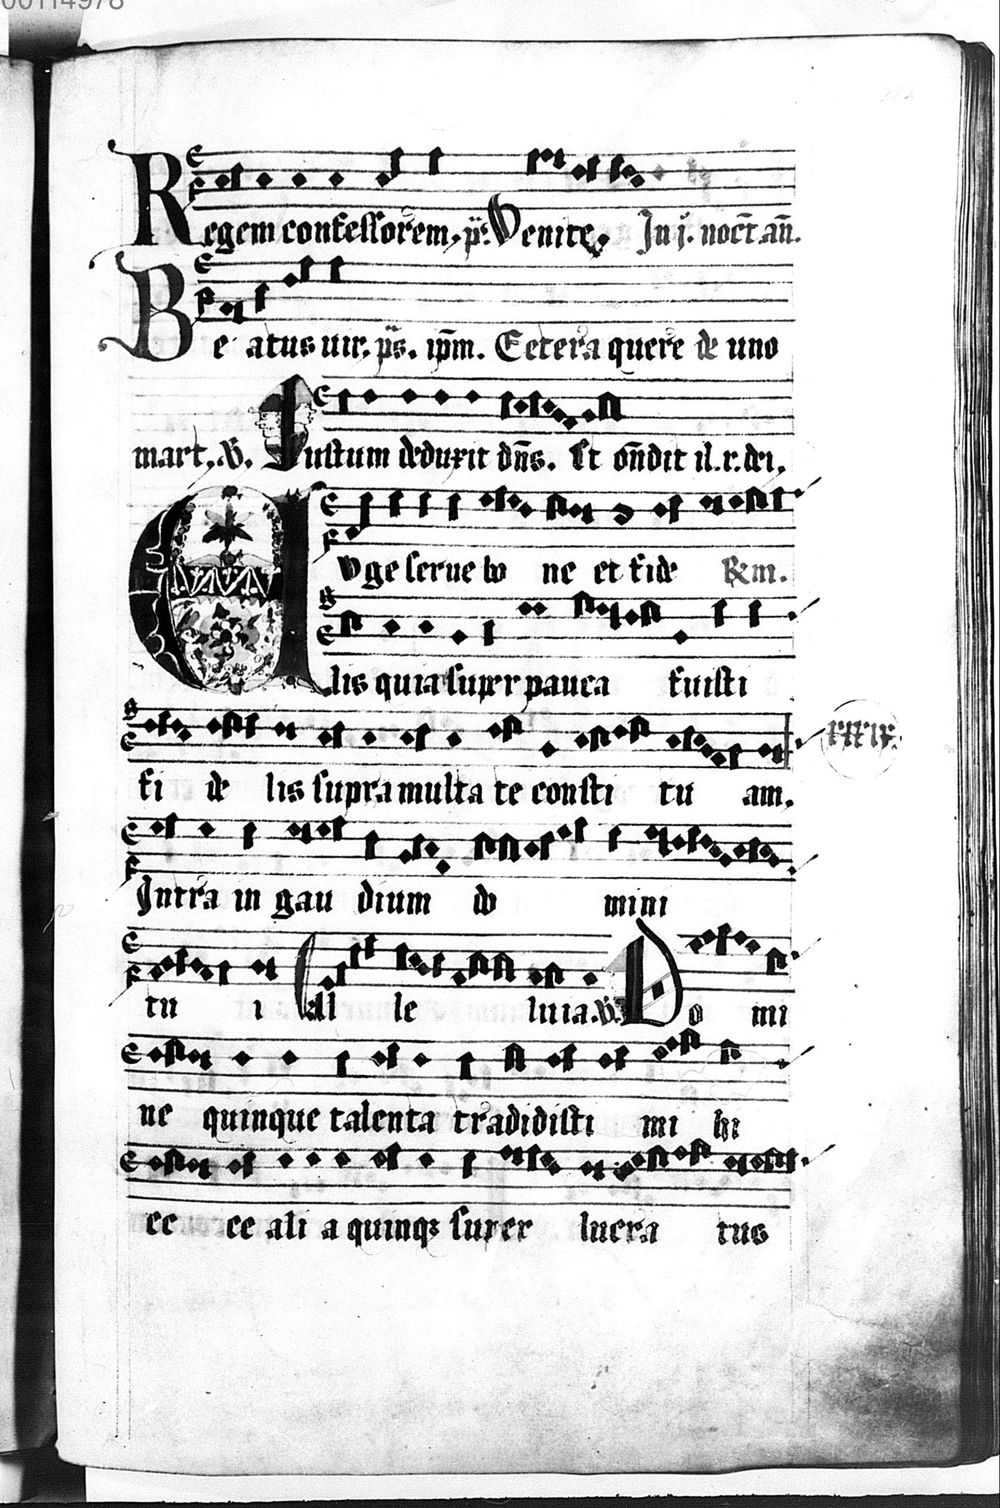 00114978
Regem confessorem. ps. Venite. In j. noct. an.
Be atus uir. ps. ipm. Cetera quere de uno
mart. V. Iustum deduxit dns. Et ondit il. r. dei.
Euge serue bo ne et fide Rm.
lis quia super pauca fuisti
fi de lis supra multa te consti tu am.
Intra in gau dium do mini
tu i Al le luia. V. Do mi
ne quinque talenta tradidisti mi hi
ec ce ali a quinqꝫ super lucra tus